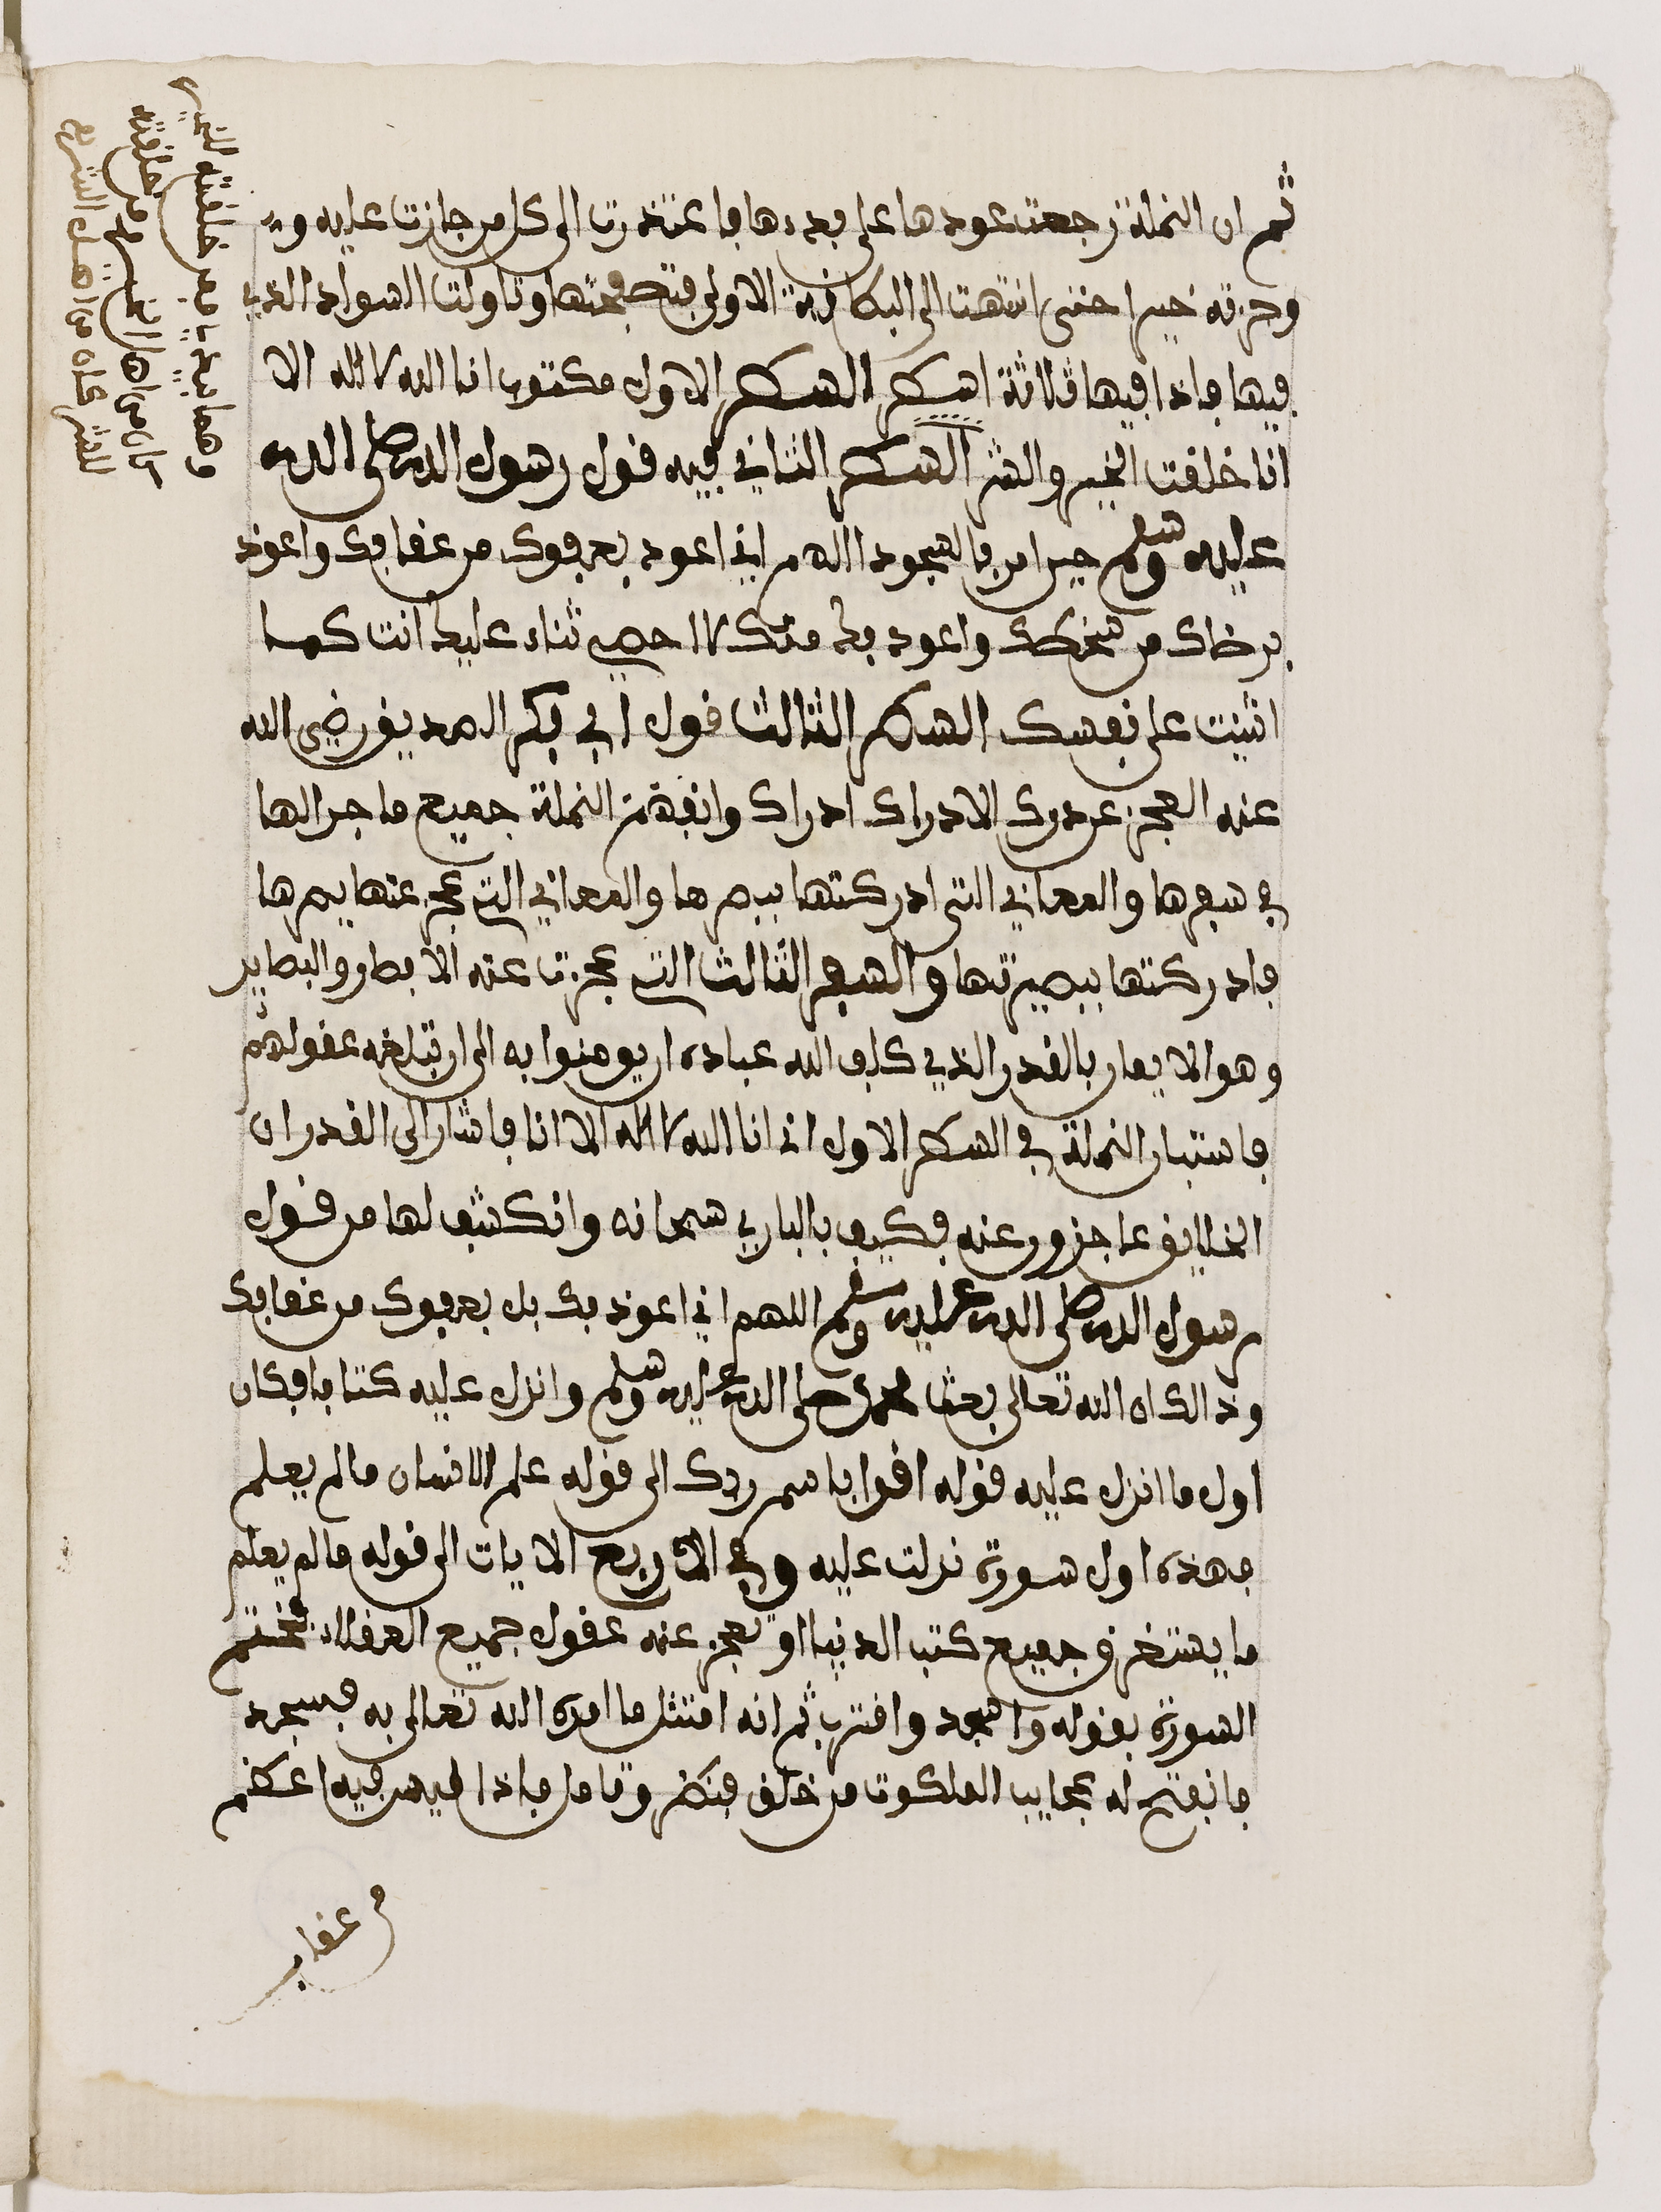 ثم ان النملة رجعت عودها على بدءها فاعتذرت الى كل من جازت عليه و
وجزته خيرا حتى انتهت الى البكاغدة الاولى فتصفحتها وتاولت السواد الذي
فيها فاذا فيها ثلاثة اسطر السطر الاول مكتوب انا الله لا اله الا
انا خلقت الخير والشر السطر الثاني فيه قول رسول الله صلى الله
عليه وسلم حين امر بالسجود اللهم اني اعوذ بعفوك من عقابك واعوذ
برضاك من سخطك واعوذ بك منك لا احصي ثناء عليك انت كما
اثنيت على نفسك السطر الثالث قول ابي بكر الصديق رضي الله
عنه العجز عن درك الادراك ادراك وانفهمت النملة جميع ما جرا لها
في سفرها والمعاني التي ادركتها ببصرها والمعاني التي عجز عنها بصرها
فادركتها ببصيرتها والسفر الثالث التي عجزت عنه الابصار والبصاير
وهو الايمان بالقدر الذي كلف الله عباده ان يومنوا به الى ان تبلغه عقولهم
فاستبان النملة في السطر الاول اني انا الله لا اله الا انا فاشار الى القدر ان
الخلايق عاجزون عنه فكيف بالباري سبحانه وانكشف لها من قول
رسول الله صلى الله عليه وسلم اللهم اني اعوذ بك بل بعفوك من عقابك
وذالك ان الله تعالى بعث محمدا صلى الله عليه وسلم وانزل عليه كتابا فكان
اول ما انزل عليه قوله اقرا باسم ربك الى قوله علم الانسان ما لم يعلم
فهذه اول سورة نزلت عليه وفي الاربع الايات الى قوله ما لم يعلم
ما يستغرق جميع كتب الدنيا او تعجز عنه عقول جميع العقلاء فختم
السورة بقوله واسجد واقترب ثم انه امتثل ما امره الله تعالى به فسجد
فانفتح له عجايب الملكوت من خلق فنظر وتامل فاذا ليس فيه اعظم
من عقاب